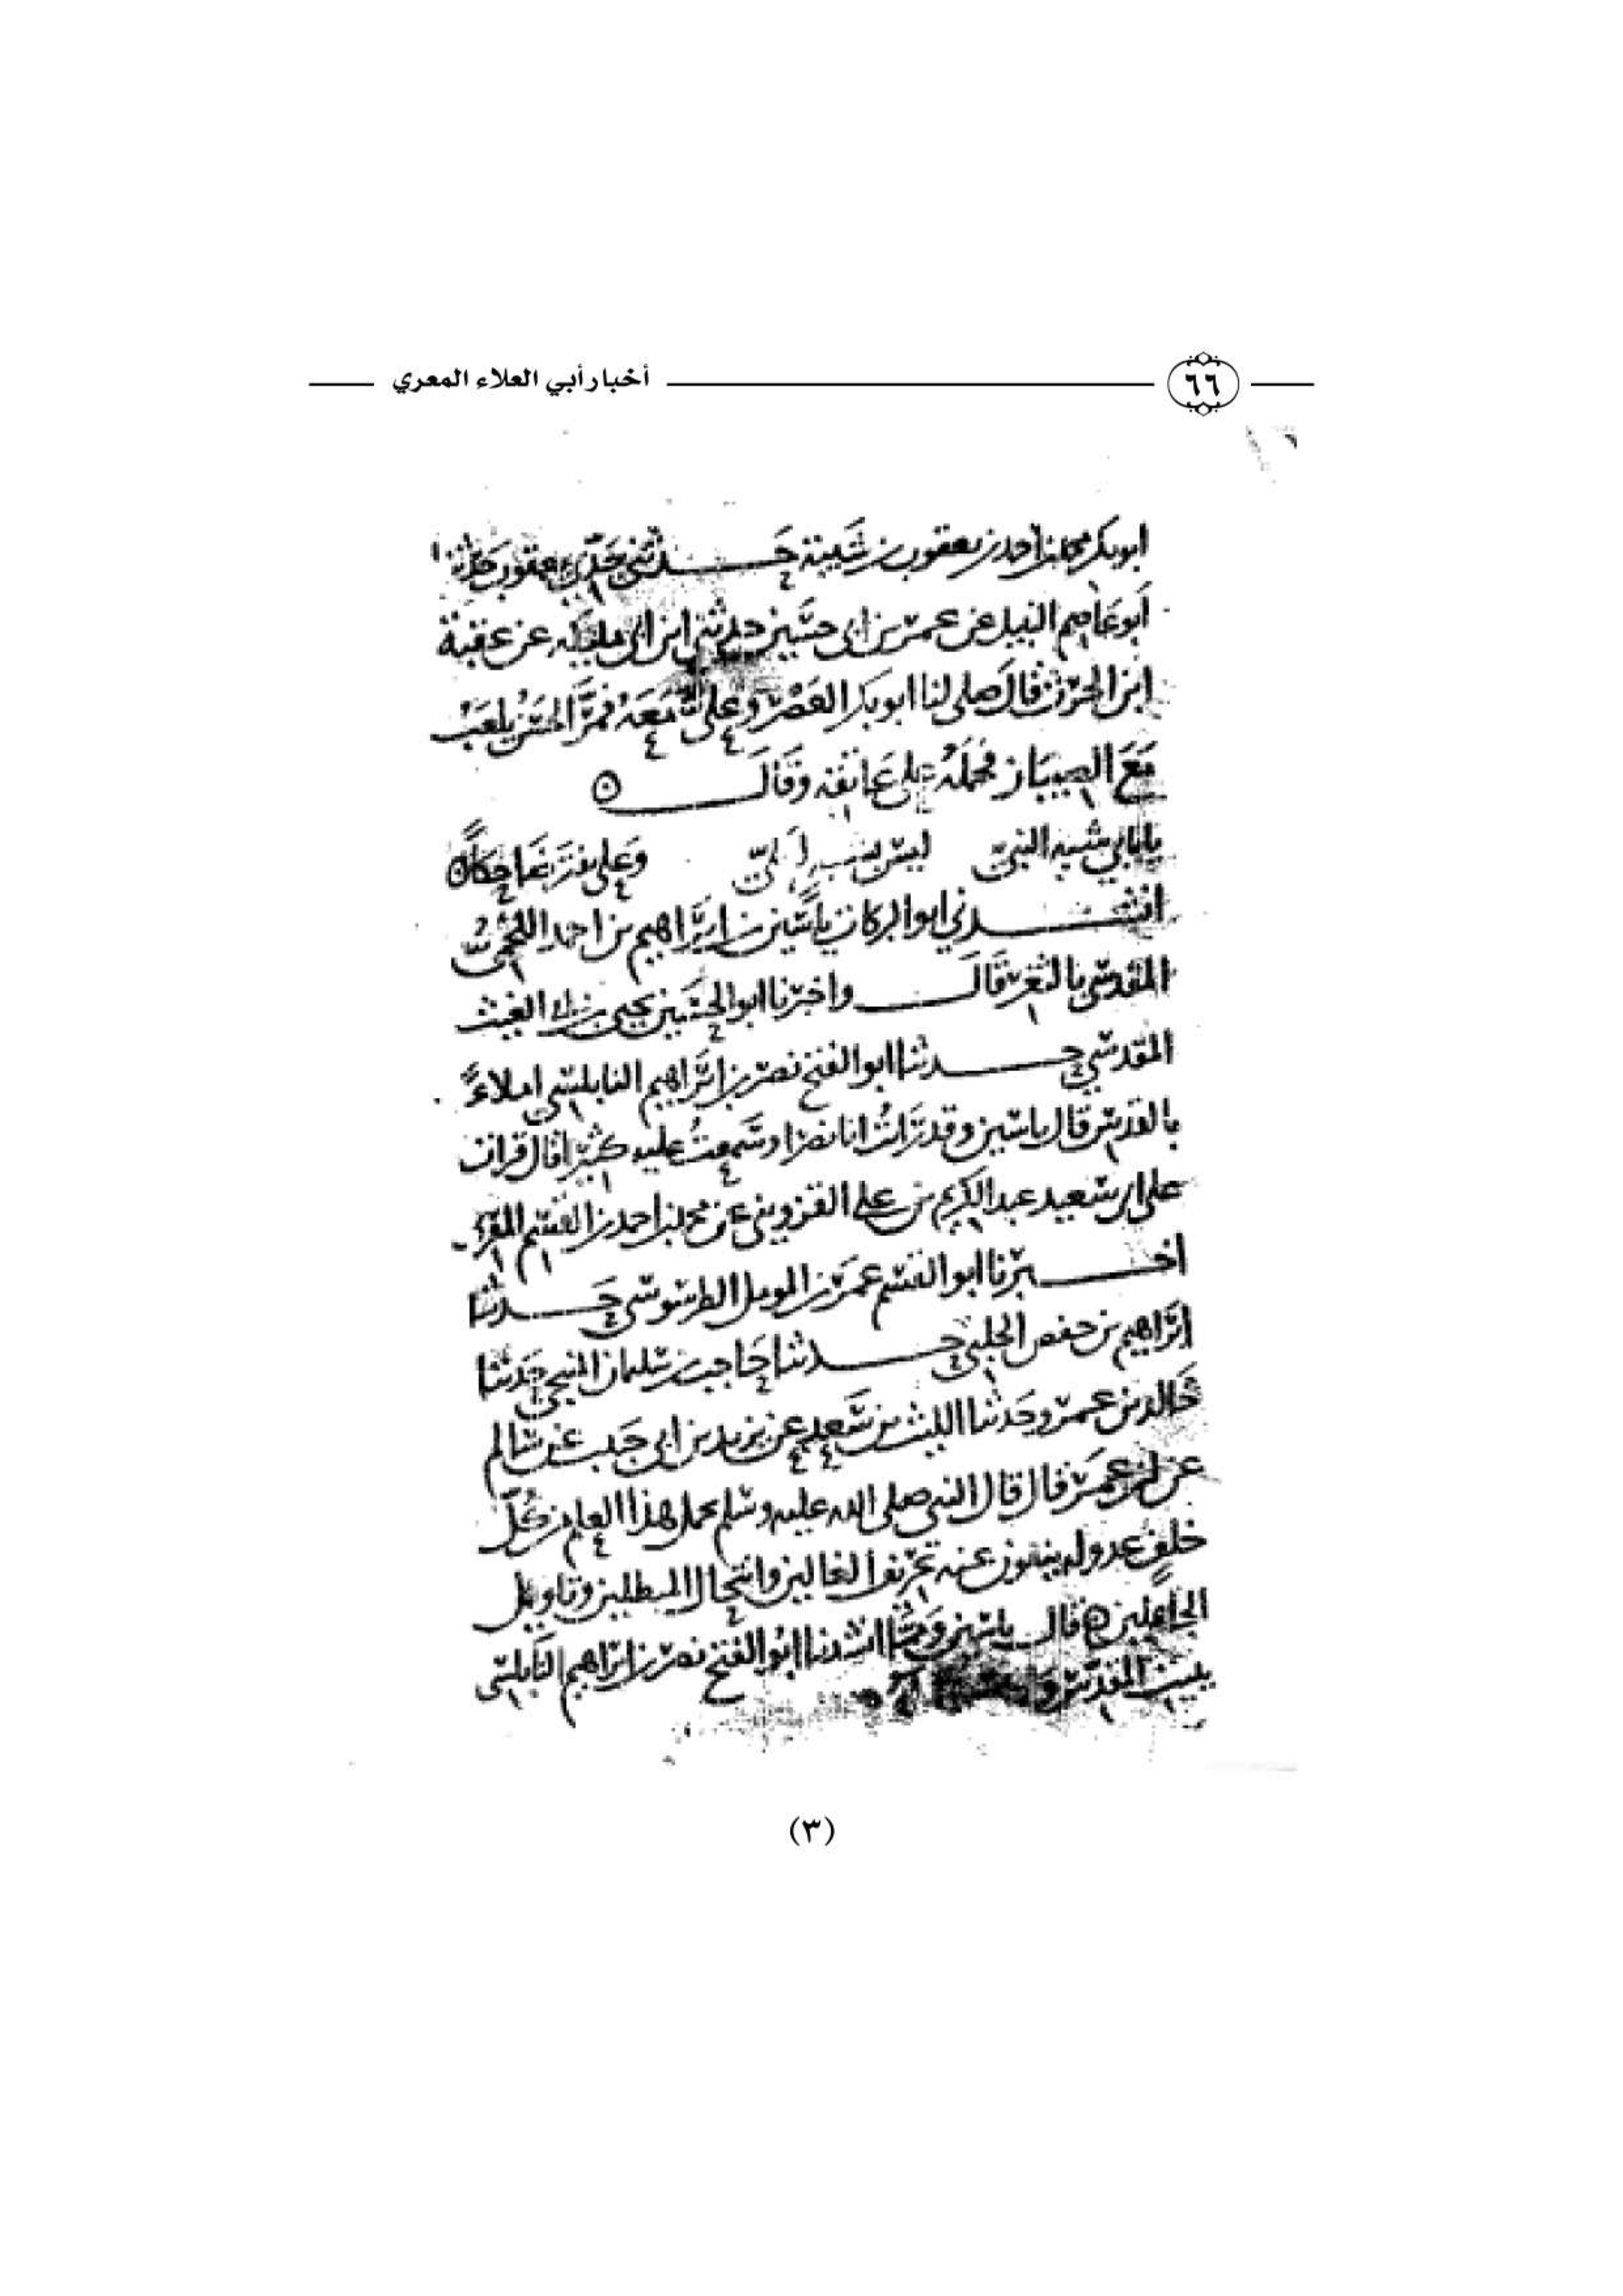 ٦٦
أخبار أبي العلاء المعري
ابو بكر محمد بن احمد بن يعقوب بن شيبة حدثني جدي يعقوب حدثنا
أبو عاصم النبيل عن عمر بن ابي حسين حدثني ابن ابي مليكه عن عقبة
ابن الحرث قال صلى لنا ابو بكر العصر وعلي معه فمر الحسن يلعب
مع الصبيان فحمله على عاتقه وقال
يا بابي شبيه النبي ليس بشبيه علي وعلي ضاحكا
انشدني ابو البركات ياسين بن ابراهيم بن احمد اللخمي
المقدسي بالثغر قال واخبرنا ابو الحسين يحيى بن الغيث
المقدسي حدثنا ابو الفتح نصر بن ابراهيم النابلسي املاء
بالقدس قال ياسين وقد انا نصرا وسمعت عليه كثيرا قال قرات
على ابي سعيد عبد الكريم بن علي القزويني عن محمد بن احمد بن القسم المقرئ
اخبرنا ابو القسم عمر بن المومل الطرسوسي حدثنا
ابراهيم بن حفص الحلبي حدثنا حاجب بن سليمان المنبجي حدثنا
خالد بن عمرو حدثنا الليث بن سعد عن يزيد بن ابي حبيب عن سالم
عن ابن عمر قال قال النبي صلى الله عليه وسلم يحمل هذا العلم من كل
خلف عدوله ينفون عنه تحريف الغالين وانتحال المبطلين وتاويل
الجاهلين قال ياسين انشدنا ابو الفتح نصر بن ابراهيم النابلسي
ببيت المقدس
(٣)